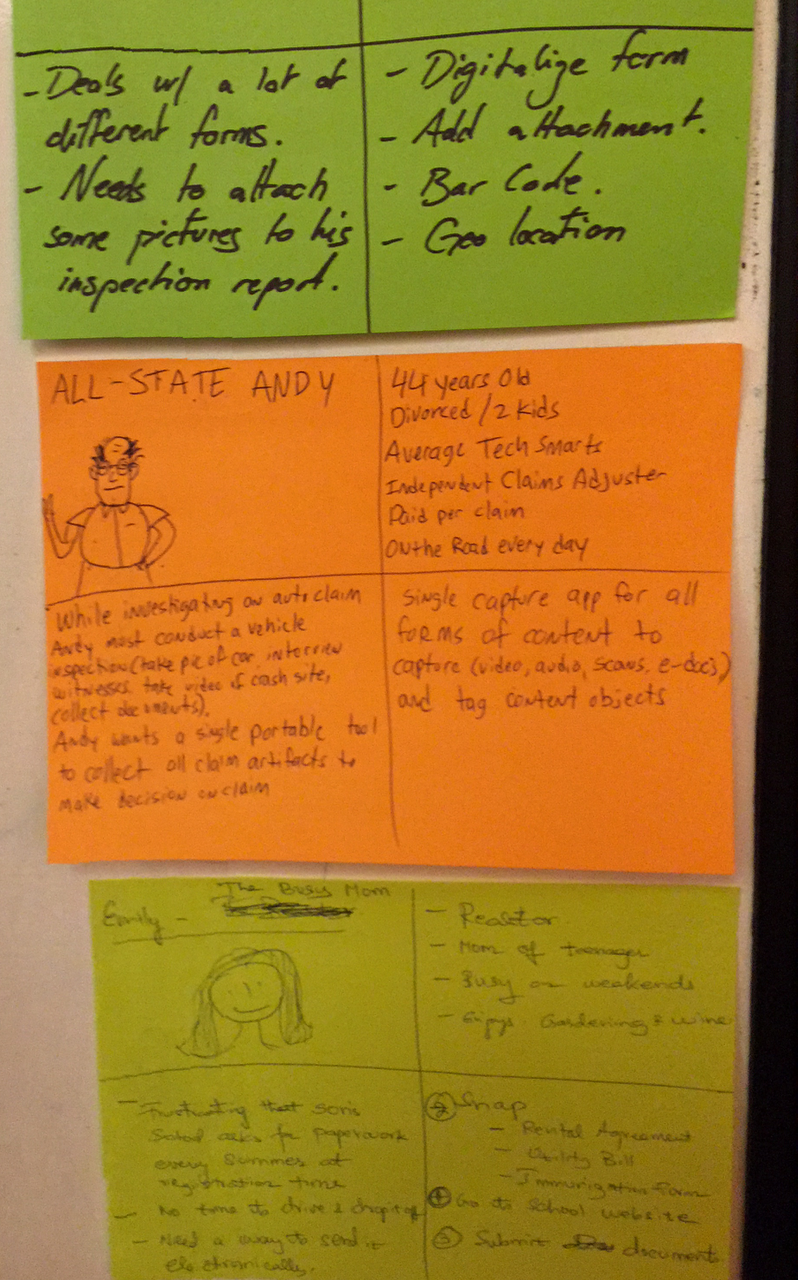 - Deals w/ a lot of
different forms.
- Needs to attach
some pictures to his
inspection report.
- Digitalize form
- Add attachment.
- Bar Code.
- Geo location
ALL-STATE ANDY
44 years Old
Divorced / 2 kids
Average Tech Smarts
Independent Claims Adjuster
Paid per claim
On the Road every day
While investigating an auto claim
Andy must conduct a vehicle
inspection (take pic of car, interview
witnesses take video of crash site,
collect documents).
Andy wants a single portable tool
to collect all claim artifacts to
make decision on claim
Single capture app for all
forms of content to
capture (video, audio, scans, e-docs)
and tag content objects
The Busy Mom
Emily -
- Realtor
- Mom of teenager
- Busy on weekends
- Enjoys Gardening & wine
- Frustrating that son's
School asks for paperwork
every summer at
registration time
- No time to drive & drop it off
- Need a way to send it
electronically.
② Snap
- Rental Agreement
- Utility Bill
- Immunization Form
① Go to School website
③ Submit documents